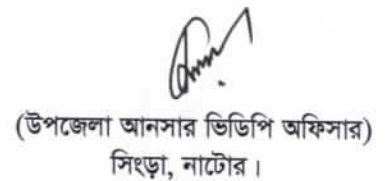 (উপজেলা আনসার ভিডিপি অফিসার)
সিংড়া, নাটোর।